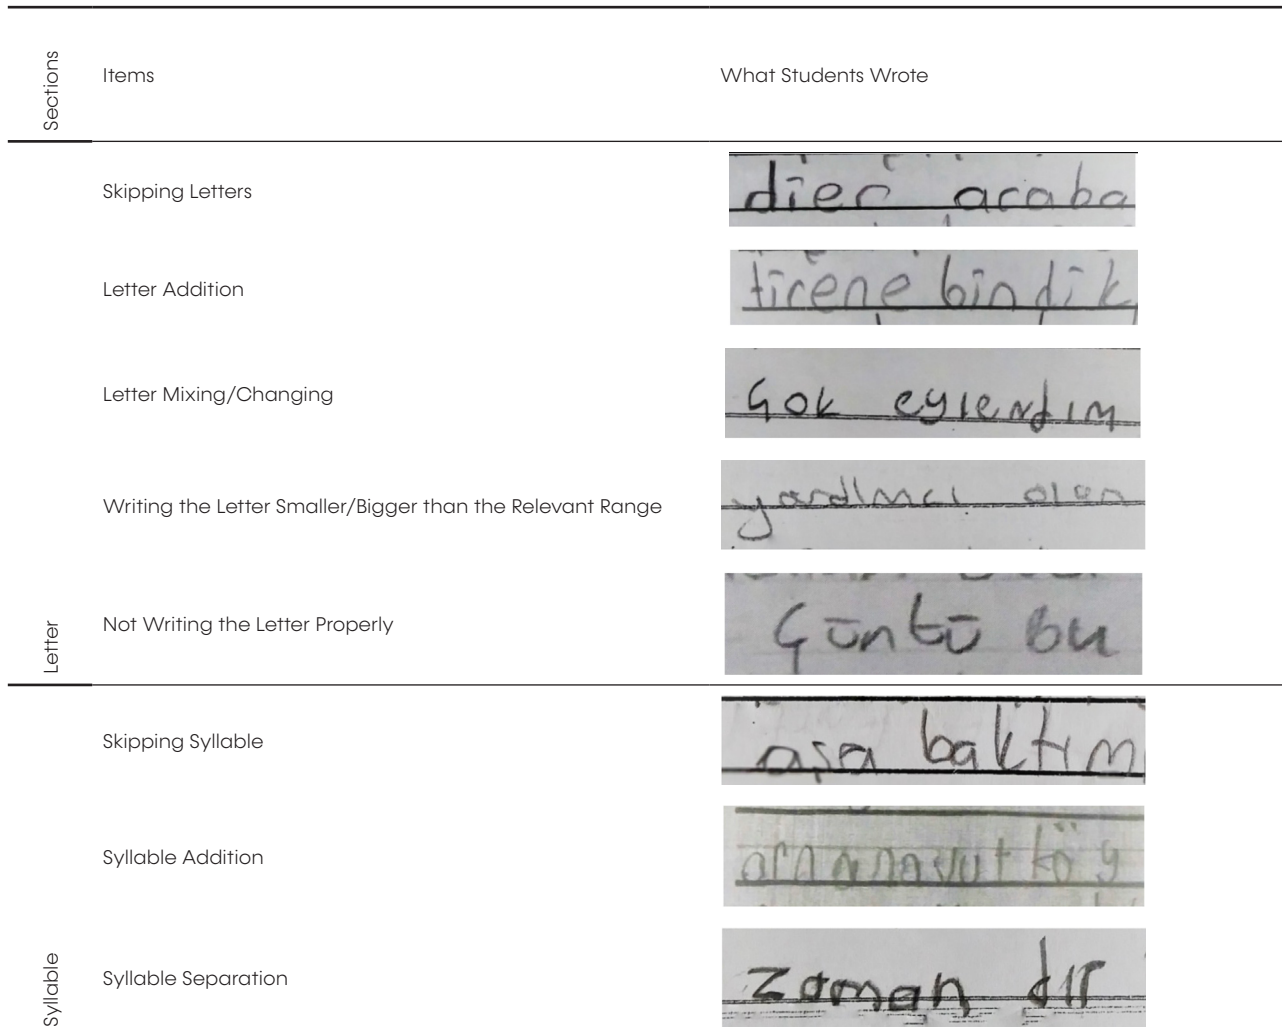 Sections Items What Students Wrote
Skipping Letters dier araba
Letter Addition tirene bindik
Letter Mixing/Changing Çok eylendım
Writing the Letter Smaller/Bigger than the Relevant Range yardımcı olan
Letter Not Writing the Letter Properly Çünkü bu
Skipping Syllable aşa baktım
Syllable Addition arnanavut köy
Syllable Syllable Separation zaman dır